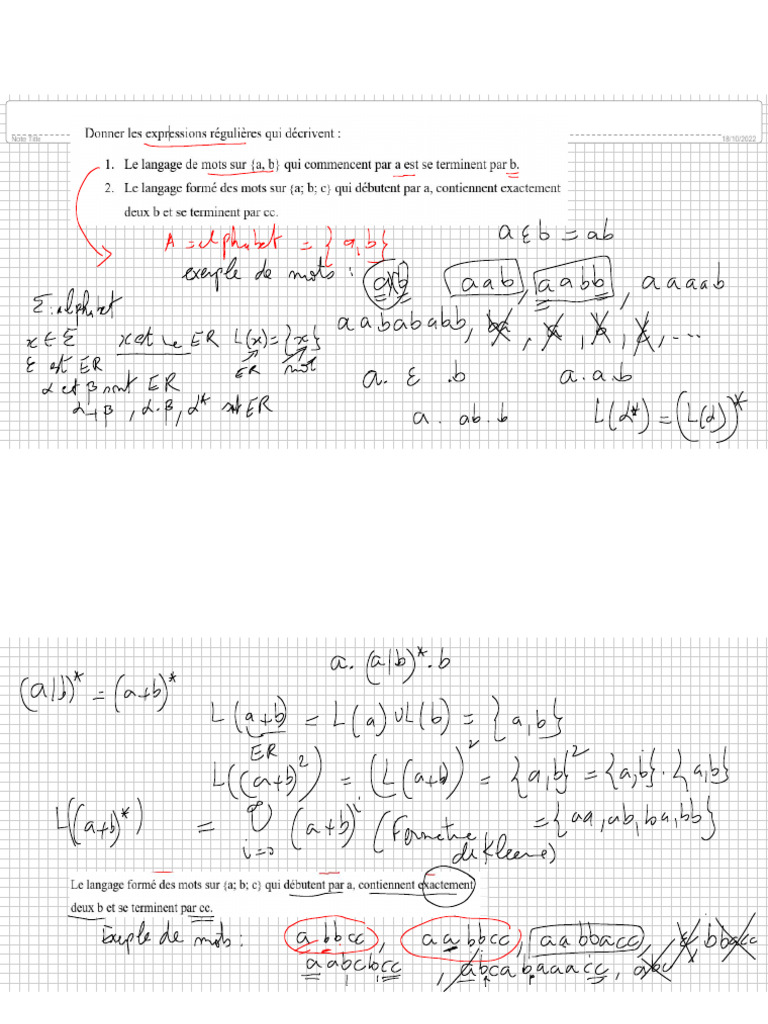 Note Title
18/10/2022
Donner les expressions régulières qui décrivent :
1. Le langage de mots sur {a, b} qui commencent par a est se terminent par b.
2. Le langage formé des mots sur {a; b; c} qui débutent par a, contiennent exactement
deux b et se terminent par cc.
A = alphabet = {a,b}
a ε b = ab
exemple de mots : ab, aab, aabb, aaaab
Σ: alphabet
aabababb, ba, ...
x ∈ Σ x est une ER L(x)={x}
ER mot
ε est ER
α et β sont ER
α+β, α.β, α* st ER
a. ε .b a.a.b
a. ab.b L(α*) = (L(α))*
a.(a|b)*.b
(a|b)* = (a+b)*
L(a+b) = L(a) ∪ L(b) = {a,b}
ER
L((a+b)²) = (L(a+b))² = {a,b}² = {a,b}.{a,b}
= {aa, ab, ba, bb}
L((a+b)*) = ∪ i=0 ∞ (a+b)^i (Fermeture de Kleene)
Le langage formé des mots sur {a; b; c} qui débutent par a, contiennent exactement
deux b et se terminent par cc.
Exemple de mots : abbcc, aabbcc, aabbacc, ε, bbacc
aabcbcc, abcabaaacc, abc